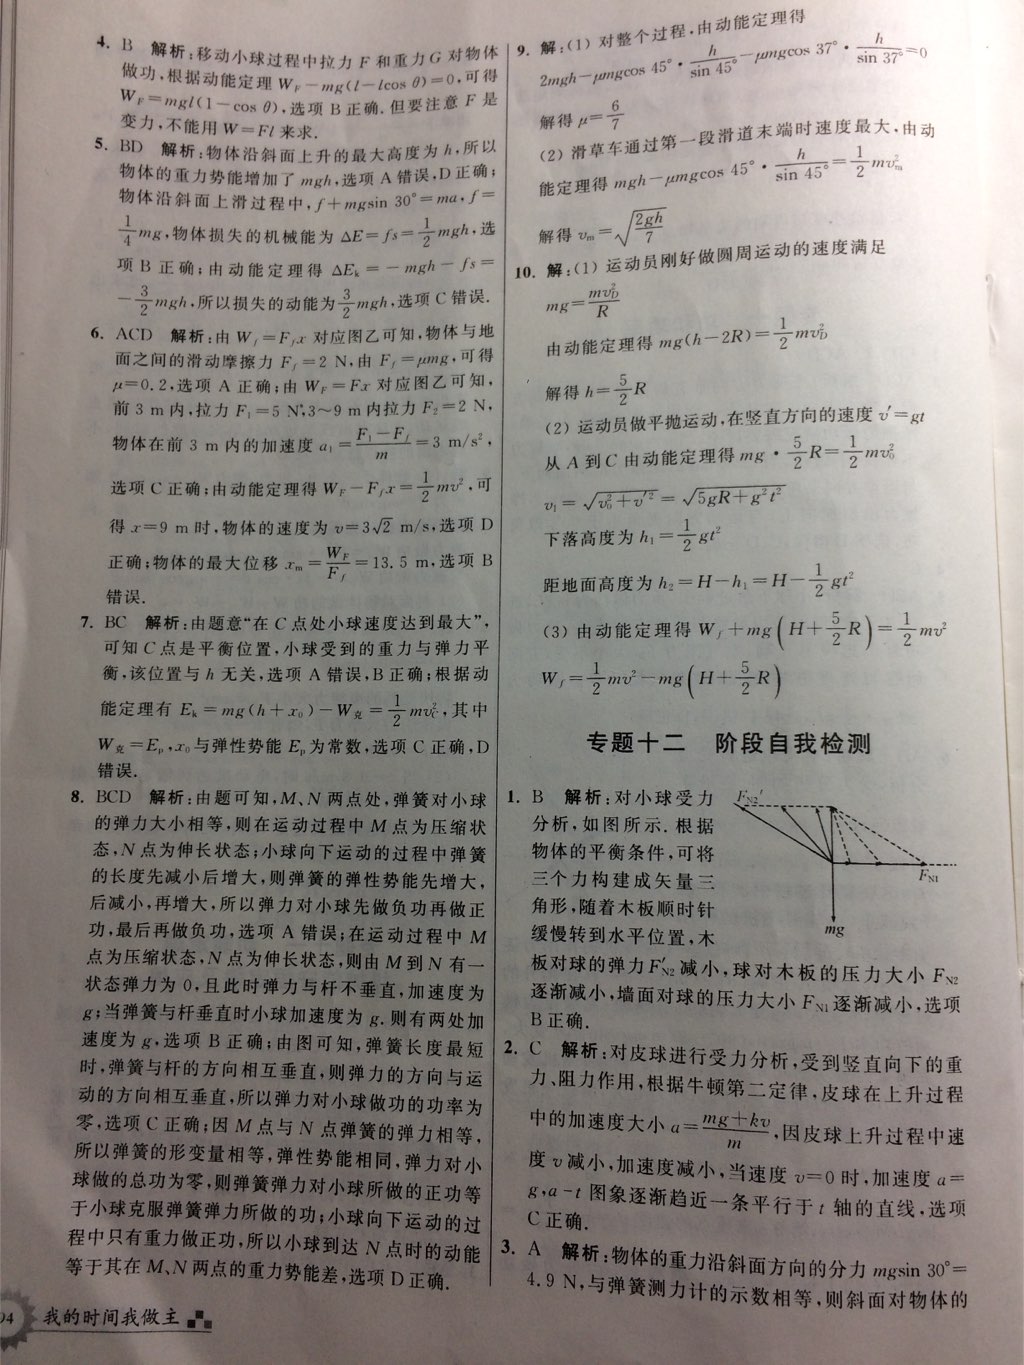 4. B 解析:移动小球过程中拉力 F 和重力 G 对物体
做功,根据动能定理 W_F－mg(l－lcos θ)=0,可得
W_F=mgl(1－cos θ),选项 B 正确.但要注意 F 是
变力,不能用 W=Fl 来求.
5. BD 解析:物体沿斜面上升的最大高度为 h,所以
物体的重力势能增加了 mgh,选项 A 错误,D 正确;
物体沿斜面上滑过程中,f+mgsin 30°=ma,f=
1/4 mg,物体损失的机械能为 ΔE=fs=1/2 mgh,选
项 B 正确;由动能定理得 ΔE_k=－mgh－fs=
－3/2 mgh,所以损失的动能为 3/2 mgh,选项 C 错误.
6. ACD 解析:由 W_f=F_f x 对应图乙可知,物体与地
面之间的滑动摩擦力 F_f=2 N,由 F_f=μmg,可得
μ=0.2,选项 A 正确;由 W_F=Fx 对应图乙可知,
前 3 m 内,拉力 F₁=5 N,3～9 m 内拉力 F₂=2 N,
物体在前 3 m 内的加速度 a₁=(F₁－F_f)/m=3 m/s²,
选项 C 正确;由动能定理得 W_F－F_f x=1/2 mv²,可
得 x=9 m 时,物体的速度为 v=3√2 m/s,选项 D
正确;物体的最大位移 x_m=W_F/F_f=13.5 m,选项 B
错误.
7. BC 解析:由题意“在 C 点处小球速度达到最大”,
可知 C 点是平衡位置,小球受到的重力与弹力平
衡,该位置与 h 无关,选项 A 错误,B 正确;根据动
能定理有 E_k=mg(h+x₀)－W克=1/2 mv_C²,其中
W克=E_p,x₀与弹性势能 E_p为常数,选项 C 正确,D
错误.
8. BCD 解析:由题可知,M、N 两点处,弹簧对小球
的弹力大小相等,则在运动过程中 M 点为压缩状
态,N 点为伸长状态;小球向下运动的过程中弹簧
的长度先减小后增大,则弹簧的弹性势能先增大,
后减小,再增大,所以弹力对小球先做负功再做正
功,最后再做负功,选项 A 错误;在运动过程中 M
点为压缩状态,N 点为伸长状态,则由 M 到 N 有一
状态弹力为 0,且此时弹力与杆不垂直,加速度为
g;当弹簧与杆垂直时小球加速度为 g.则有两处加
速度为 g,选项 B 正确;由图可知,弹簧长度最短
时,弹簧与杆的方向相互垂直,则弹力的方向与运
动的方向相互垂直,所以弹力对小球做功的功率为
零,选项 C 正确;因 M 点与 N 点弹簧的弹力相等,
所以弹簧的形变量相等,弹性势能相同,弹力对小
球做的总功为零,则弹簧弹力对小球所做的正功等
于小球克服弹簧弹力所做的功;小球向下运动的过
程中只有重力做正功,所以小球到达 N 点时的动能
等于其在 M、N 两点的重力势能差,选项 D 正确.
04 我的时间我做主
9. 解:(1) 对整个过程,由动能定理得
2mgh－μmgcos 45°·h/sin 45°－μmgcos 37°·h/sin 37°=0
解得 μ=6/7
(2) 滑草车通过第一段滑道末端时速度最大,由动
能定理得 mgh－μmgcos 45°·h/sin 45°=1/2 mv_m²
解得 v_m=√(2gh/7)
10. 解:(1) 运动员刚好做圆周运动的速度满足
mg=mv_D²/R
由动能定理得 mg(h－2R)=1/2 mv_D²
解得 h=5/2 R
(2) 运动员做平抛运动,在竖直方向的速度 v′=gt
从 A 到 C 由动能定理得 mg·5/2 R=1/2 mv₀²
v₁=√(v₀²+v′²)=√(5gR+g²t²)
下落高度为 h₁=1/2 gt²
距地面高度为 h₂=H－h₁=H－1/2 gt²
(3) 由动能定理得 W_f+mg(H+5/2 R)=1/2 mv²
W_f=1/2 mv²－mg(H+5/2 R)
专题十二 阶段自我检测
1. B 解析:对小球受力
分析,如图所示.根据
物体的平衡条件,可将
三个力构建成矢量三
角形,随着木板顺时针
缓慢转到水平位置,木
F_N2′
F_N1
mg
板对球的弹力F′_N2减小,球对木板的压力大小 F_N2
逐渐减小,墙面对球的压力大小 F_N1逐渐减小,选项
B 正确.
2. C 解析:对皮球进行受力分析,受到竖直向下的重
力、阻力作用,根据牛顿第二定律,皮球在上升过程
中的加速度大小 a=(mg+kv)/m,因皮球上升过程中速
度 v 减小,加速度减小,当速度 v=0 时,加速度 a=
g,a-t 图象逐渐趋近一条平行于 t 轴的直线,选项
C 正确.
3. A 解析:物体的重力沿斜面方向的分力 mgsin 30°=
4.9 N,与弹簧测力计的示数相等,则斜面对物体的